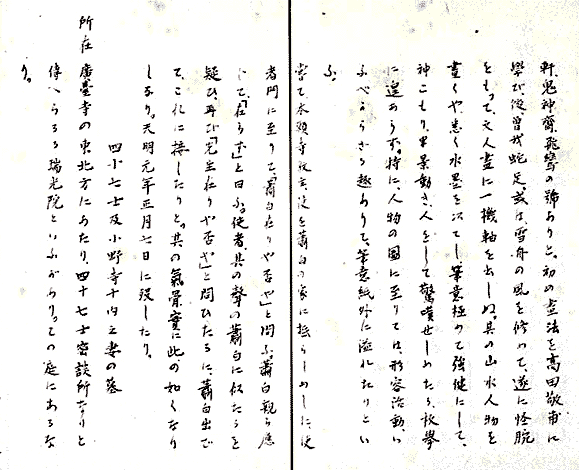 軒、鬼神齋、飛鸞の號ありと。初め畫法を高田敬甫に
學び、後曾我蛇足或は、雪舟の風を修めて、遂に怪腕
をもつて、文人畫に一機軸を出しぬ。其の山水人物を
畫くや、悉く水墨を以てし筆意極めて強健にして、
神こもり、曲景動き、人をして驚嘆せしめたる枚擧
に遑あらず。特に、人物の圖に至りては、形容活動、い
ふべからざる趣ありて、筆意紙外に溢れたりとい
ふ。
嘗て本願寺教主使を蕭白の家に振らしめしに、使
者門に至りて、「蕭白在りや否や」と問ふ。蕭白親ら應
じて、「在らず」と曰ふ。使者、其の聲の蕭白に似たるを
疑ひ、再び「先生在りや否や」と問ひたるに、蕭白出で
て、これに接したりと。其の氣骨實に此の如くなり
しなり。天明元年正月七日に歿したり。
四十七士及小野寺十内之妻の墓
所在 廣臺寺の東北方にあたり、四十七士密談所なりと
傳へらるる瑞光院といふがありつての庭にあるな
り。